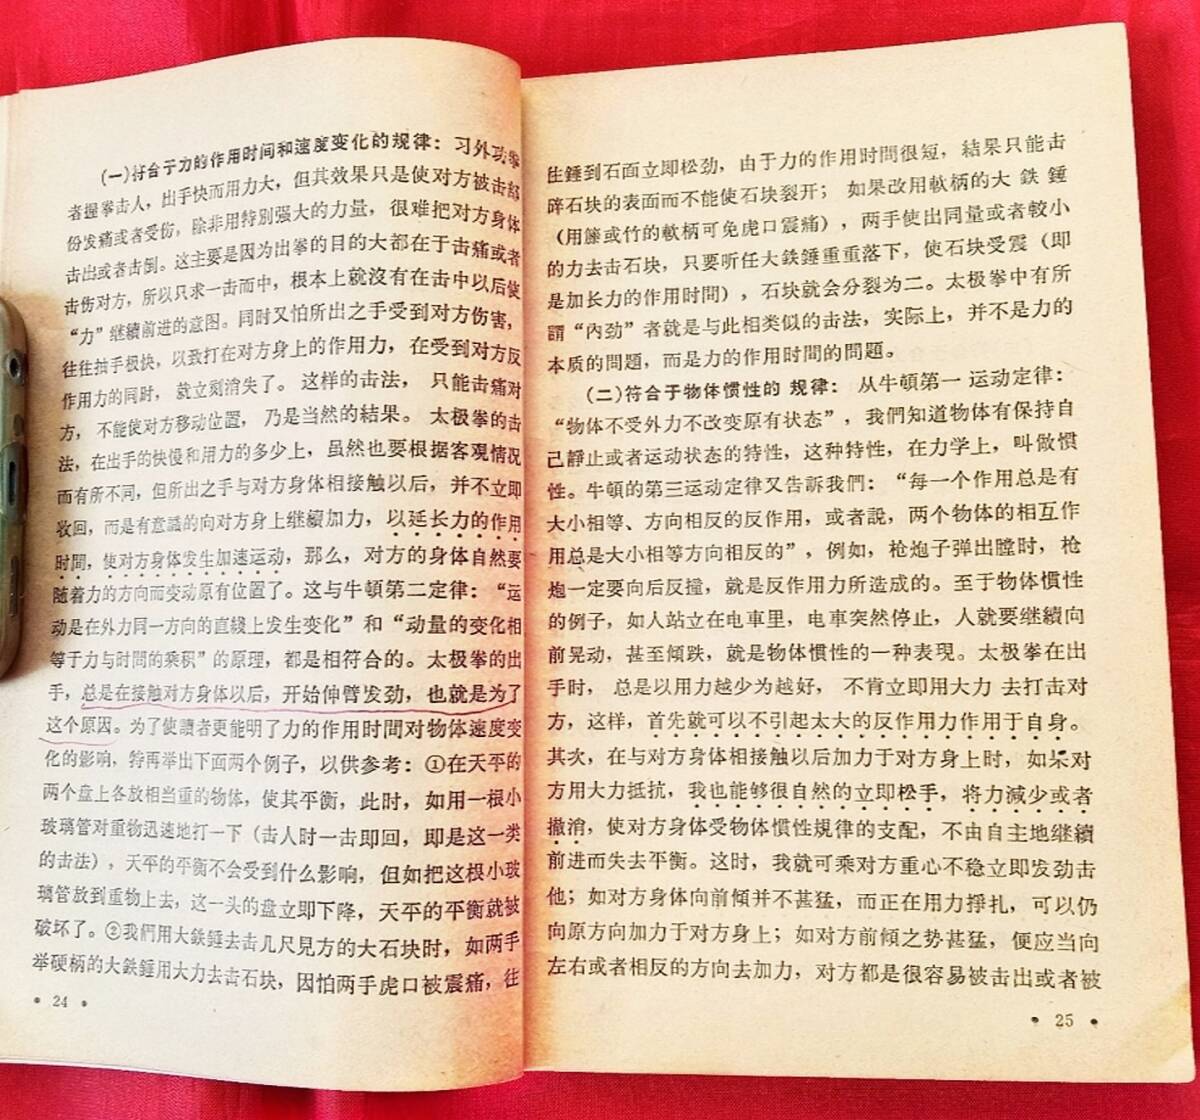 (一)符合于力的作用时间和速度变化的規律：习外功拳
者握拳击人，出手快而用力大，但其效果只是使对方被击部
份发痛或者受伤，除非用特別强大的力量，很难把对方身体
击出或者击倒。这主要是因为出拳的目的大都在于击痛或者
击伤对方，所以只求一击而中，根本上就沒有在击中以后使
“力”继續前进的意图。同时又怕所出之手受到对方伤害，
往往抽手极快，以致打在对方身上的作用力，在受到对方反
作用力的同时，就立刻消失了。这样的击法，只能击痛对
方，不能使对方移动位置，乃是当然的結果。太极拳的击
法，在出手的快慢和用力的多少上，虽然也要根据客观情况
而有所不同，但所出之手与对方身体相接触以后，并不立即
收回，而是有意識的向对方身上继續加力，以延长力的作用
时間，使对方身体发生加速运动，那么，对方的身体自然要
随着力的方向而变动原有位置了。这与牛頓第二定律：“运
动是在外力同一方向的直綫上发生变化”和“动量的变化相
等于力与时間的乘积”的原理，都是相符合的。太极拳的出
手，总是在接触对方身体以后，开始伸臂发劲，也就是为了
这个原因。为了使讀者更能明了力的作用时間对物体速度变
化的影响，特再举出下面两个例子，以供参考：①在天平的
两个盘上各放相当重的物体，使其平衡，此时，如用一根小
玻璃管对重物迅速地打一下（击人时一击即回，即是这一类
的击法），天平的平衡不会受到什么影响，但如把这根小玻
璃管放到重物上去，这一头的盘立即下降，天平的平衡就被
破坏了。②我們用大鉄錘去击几尺見方的大石块时，如两手
举硬柄的大鉄錘用大力去击石块，因怕两手虎口被震痛，往
• 24 •
往錘到石面立即松劲，由于力的作用时間很短，結果只能击
碎石块的表面而不能使石块裂开；如果改用軟柄的大鉄錘
（用籐或竹的軟柄可免虎口震痛），两手使出同量或者較小
的力去击石块，只要听任大鉄錘重重落下，使石块受震（即
是加长力的作用时間），石块就会分裂为二。太极拳中有所
謂“內劲”者就是与此相类似的击法，实际上，并不是力的
本质的問題，而是力的作用时間的問題。
(二)符合于物体慣性的規律：从牛頓第一运动定律：
“物体不受外力不改变原有状态”，我們知道物体有保持自
己靜止或者运动状态的特性，这种特性，在力学上，叫做慣
性。牛頓的第三运动定律又告訴我們：“每一个作用总是有
大小相等、方向相反的反作用，或者說，两个物体的相互作
用总是大小相等方向相反的”，例如，枪炮子弹出膛时，枪
炮一定要向后反撞，就是反作用力所造成的。至于物体慣性
的例子，如人站立在电車里，电車突然停止，人就要继續向
前晃动，甚至傾跌，就是物体慣性的一种表現。太极拳在出
手时，总是以用力越少为越好，不肯立即用大力去打击对
方，这样，首先就可以不引起太大的反作用力作用于自身。
其次，在与对方身体相接触以后加力于对方身上时，如果对
方用大力抵抗，我也能够很自然的立即松手，将力减少或者
撤消，使对方身体受物体慣性規律的支配，不由自主地继續
前进而失去平衡。这时，我就可乘对方重心不稳立即发劲击
他；如对方身体向前傾并不甚猛，而正在用力掙扎，可以仍
向原方向加力于对方身上；如对方前傾之势甚猛，便应当向
左右或者相反的方向去加力，对方都是很容易被击出或者被
• 25 •